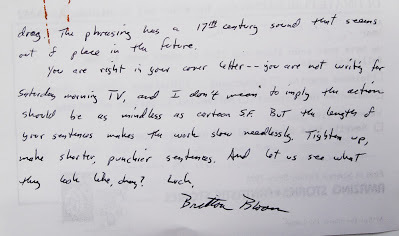 drag. The phrasing has a 17th century sound that seems
out of place in the future.
You are right in your cover letter -- you are not writing for
Saturday morning TV, and I don't mean to imply the action
should be as mindless as cartoon SF. But the length of
your sentences makes the work slow needlessly. Tighten up,
make shorter, punchier sentences. And let us see what
they look like, okay? Luck,
Bretton Bloom